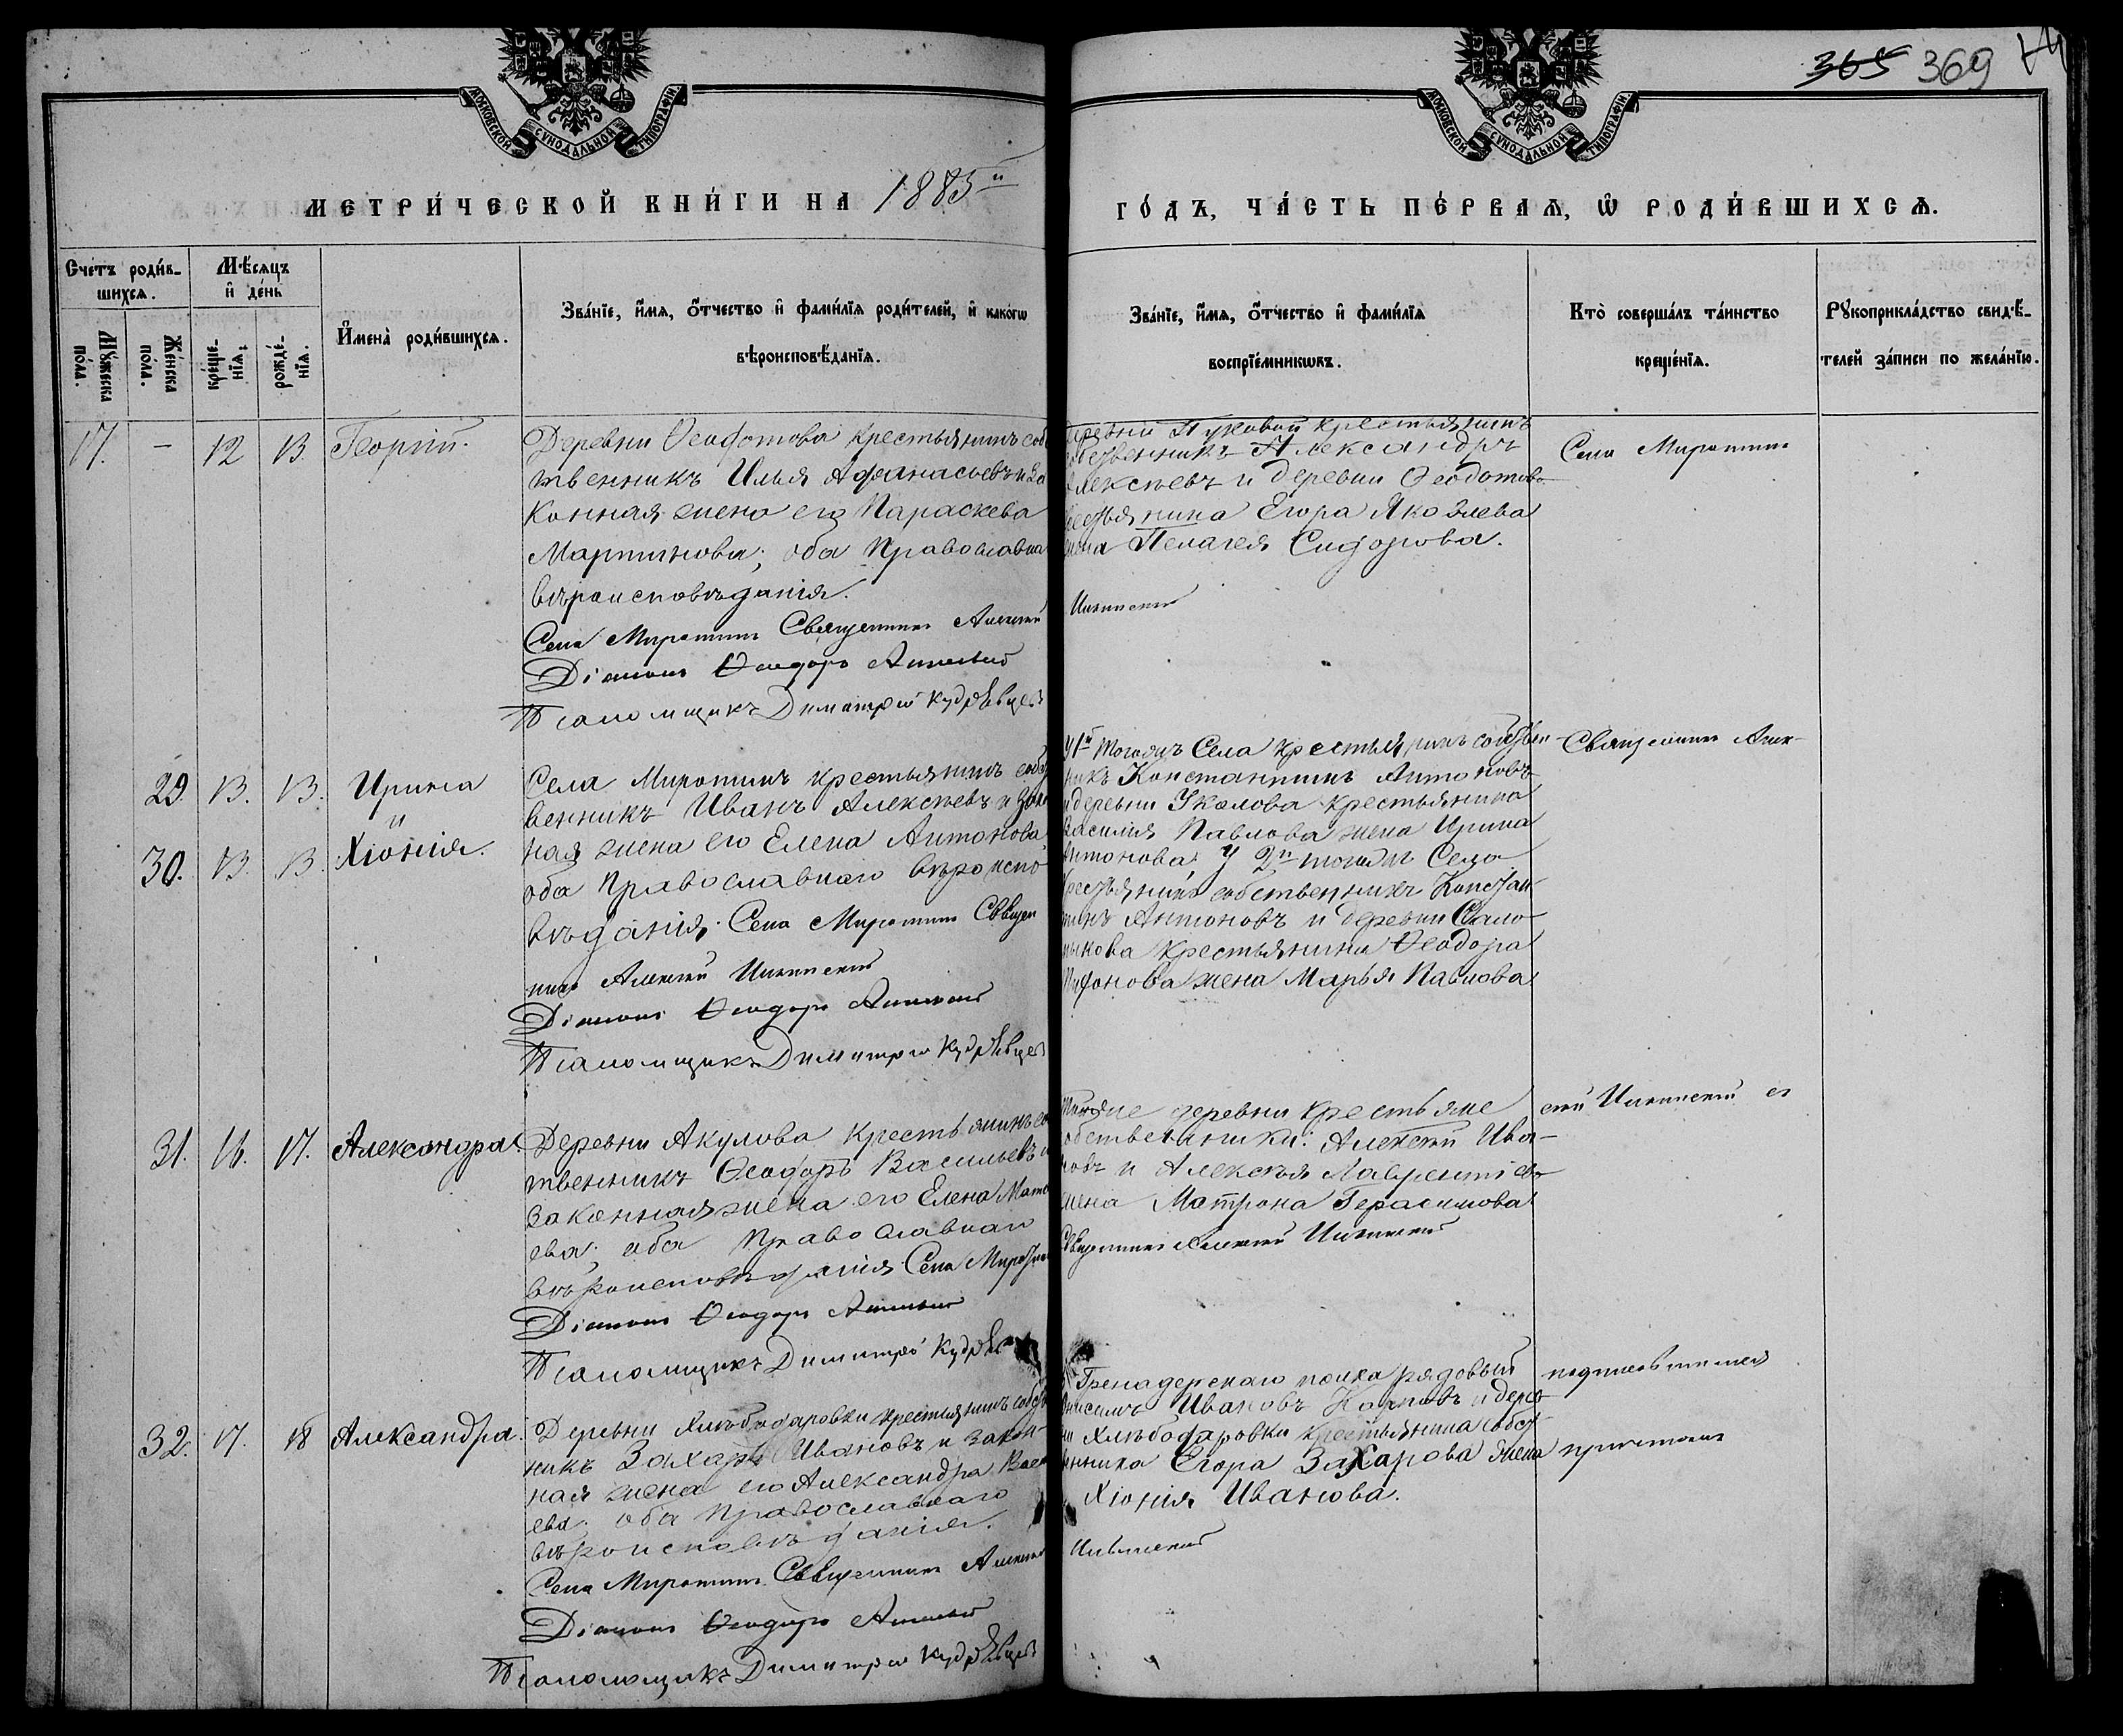 365 369
МОСКОВСКОЙ СѴНОДАЛЬНОЙ ТИПОГРАФІИ
МОСКОВСКОЙ СѴНОДАЛЬНОЙ ТИПОГРАФІИ
МЕТРИ́ЧЕСКОЙ КНИ́ГИ НА 1885й
ГО́ДЪ, ЧА́СТЬ ПЕ́РВАѦ, Ѡ҆ РОДИ́ВШИХСѦ.
Счетъ роди́в-
шихсѧ.
Мѣ́сѧцъ
и҆ де́нь
Мꙋ́жеска
по́ла.
Же́нска
по́ла.
кре́ще-
нїѧ:
рожде́-
нїѧ.
И҆мена̀ роди́вшихсѧ.
Зва́нїе, и҆́мѧ, ѻ҆́тчество и҆ фами́лїѧ роди́телей, и҆ како́гѡ
вѣроисповѣ́данїѧ.
Зва́нїе, и҆́мѧ, ѻ҆́тчество и҆ фами́лїѧ
воспрїе́мникѡвъ.
Кто̀ соверша́лъ та́инство
креще́нїѧ.
Рꙋкоприкла́дство свидѣ́-
телей за́писи по жела́нїю.
17. – 12 13. Георгій.
Деревни Ѳеодотова крестьянинъ соб
твенникъ Илья Афанасьевъ и за
конная жена его Параскева
Мартинова; оба Православна
вѣроисповѣданія.
Села Миротинъ Священникъ Алексѣй
Діаконъ Ѳеодоръ
Псаломщикъ Димитрій Кудрявцевъ
крестьянинъ
Александръ
Алексѣевъ и деревни Ѳеодотово
Егора Яковлева
жена Пелагея Сидорова.
Села Миротинъ
29. 13. 13. Ирина
и
30. 13. 13. Хіонія.
Села Миротинъ крестьянинъ соб
венникъ Иванъ Алексѣевъ и зако
ная жена его Елена Антонова
оба Православнаго вѣроиспо-
вѣданія. Села Миротинъ Священ
никъ Алексѣй
Діаконъ Ѳеодоръ
Псаломщикъ Димитрій Кудрявцевъ
У 1й тогожъ Села крестьянинъ собствен-
никъ Константинъ Антоновъ
и деревни крестьянина
Василія Павлова жена Ирина
Антонова, у 2й тогожъ Села
крестьянинъ собственникъ Констан-
тинъ Антоновъ и деревни
крестьянина Ѳеодора
жена Марья Павлова
Священникъ Алек-
31. 16. 17. Александра.
Деревни Акулова крестьянинъ со
твенникъ Ѳеодоръ Васильевъ и
законная жена его Елена Матв
ева; оба Православнаго
вѣроисповѣданія. Села Миротинъ
Діаконъ Ѳеодоръ
Псаломщикъ Димитрій Кудряв
деревни крестьяне
собственники: Алексѣй Ива-
новъ и Алексѣя Лаврентіева
жена Матрона Герасимова
Священникъ Алексѣй
сѣй съ
32. 17. 18 Александра.
Деревни Хлѣбодаровки крестьянинъ собст
никъ Захаръ Ивановъ и закон-
ная жена его Александра
ева. оба Православнаго
вѣроисповѣданія.
Села Миротинъ Священникъ Алексѣй
Діаконъ Ѳеодоръ
Псаломщикъ Димитрій Кудрявцевъ
Гренадерскаго полка рядовый
Ивановъ Карповъ и дерев
ни Хлѣбодаровки крестьянина собст
венника Егора Захарова жена
Хіонія Иванова.
подписавшимся
причтомъ